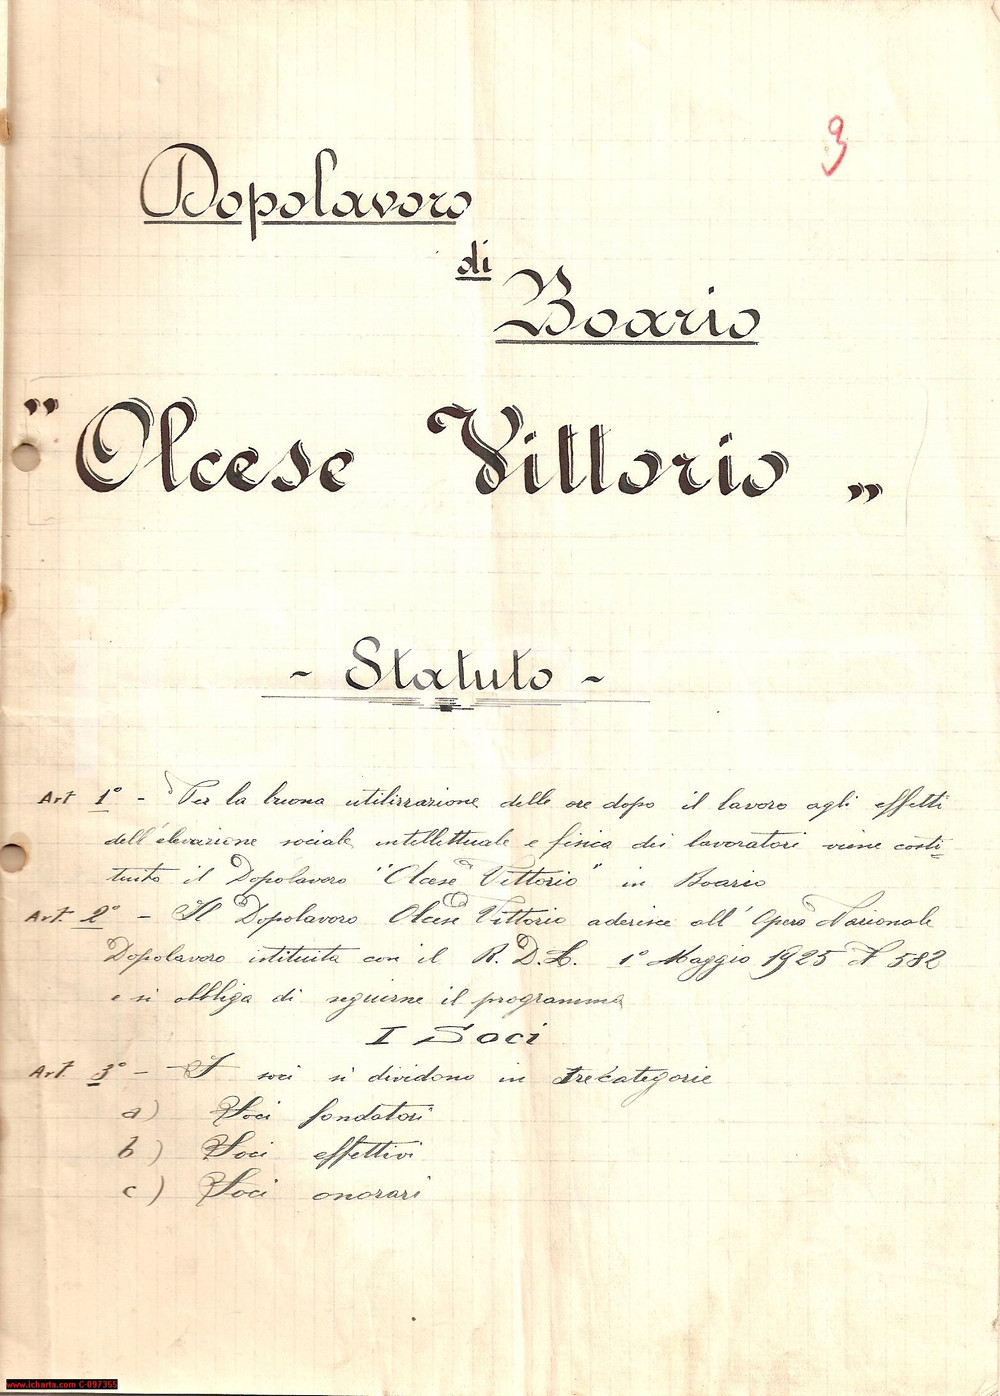 3
Dopolavoro
di
Boario
" Olcese Vittorio „
- Statuto -
Art 1° - Per la buona utilizzazione delle ore dopo il lavoro agli effetti
dell'elevazione sociale intellettuale e fisica dei lavoratori viene costi-
tuito il Dopolavoro "Olcese Vittorio" in Boario
Art 2° - Il Dopolavoro Olcese Vittorio aderisce all'Opera Nazionale
Dopolavoro istituita con il R.D.L. 1° Maggio 1925 N 582
e si obbliga di seguirne il programma
I Soci
Art 3° - I soci si dividono in tre categorie
a) Soci fondatori
b) Soci effettivi
c) Soci onorari
www.icharta.com C-097355